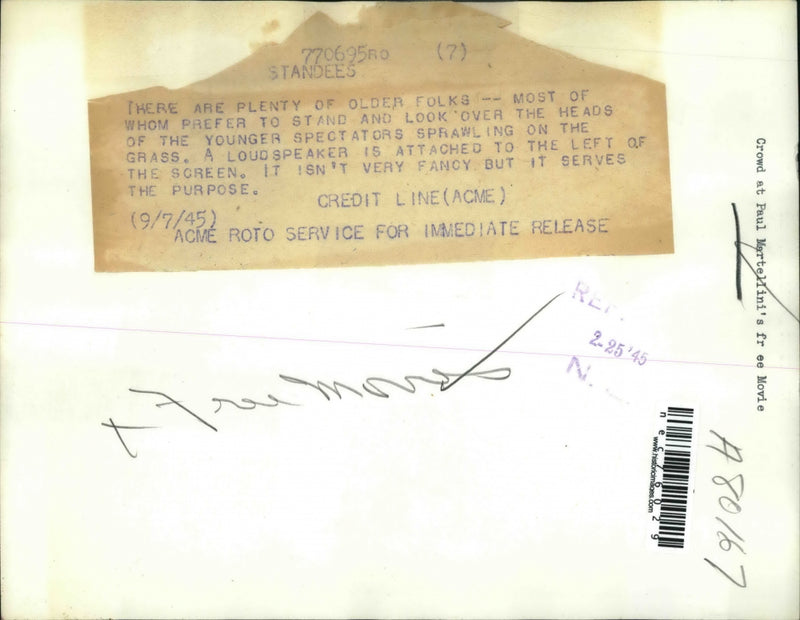 770695RO (7)
STANDEES
THERE ARE PLENTY OF OLDER FOLKS -- MOST OF
WHOM PREFER TO STAND AND LOOK OVER THE HEADS
OF THE YOUNGER SPECTATORS SPRAWLING ON THE
GRASS. A LOUDSPEAKER IS ATTACHED TO THE LEFT OF
THE SCREEN. IT ISN'T VERY FANCY BUT IT SERVES
THE PURPOSE.
CREDIT LINE(ACME)
(9/7/45)
ACME ROTO SERVICE FOR IMMEDIATE RELEASE
Crowd at Paul Martellini's fr ee Movie
2-25'45
N.
Free Movies
www.historicimages.com
A80167